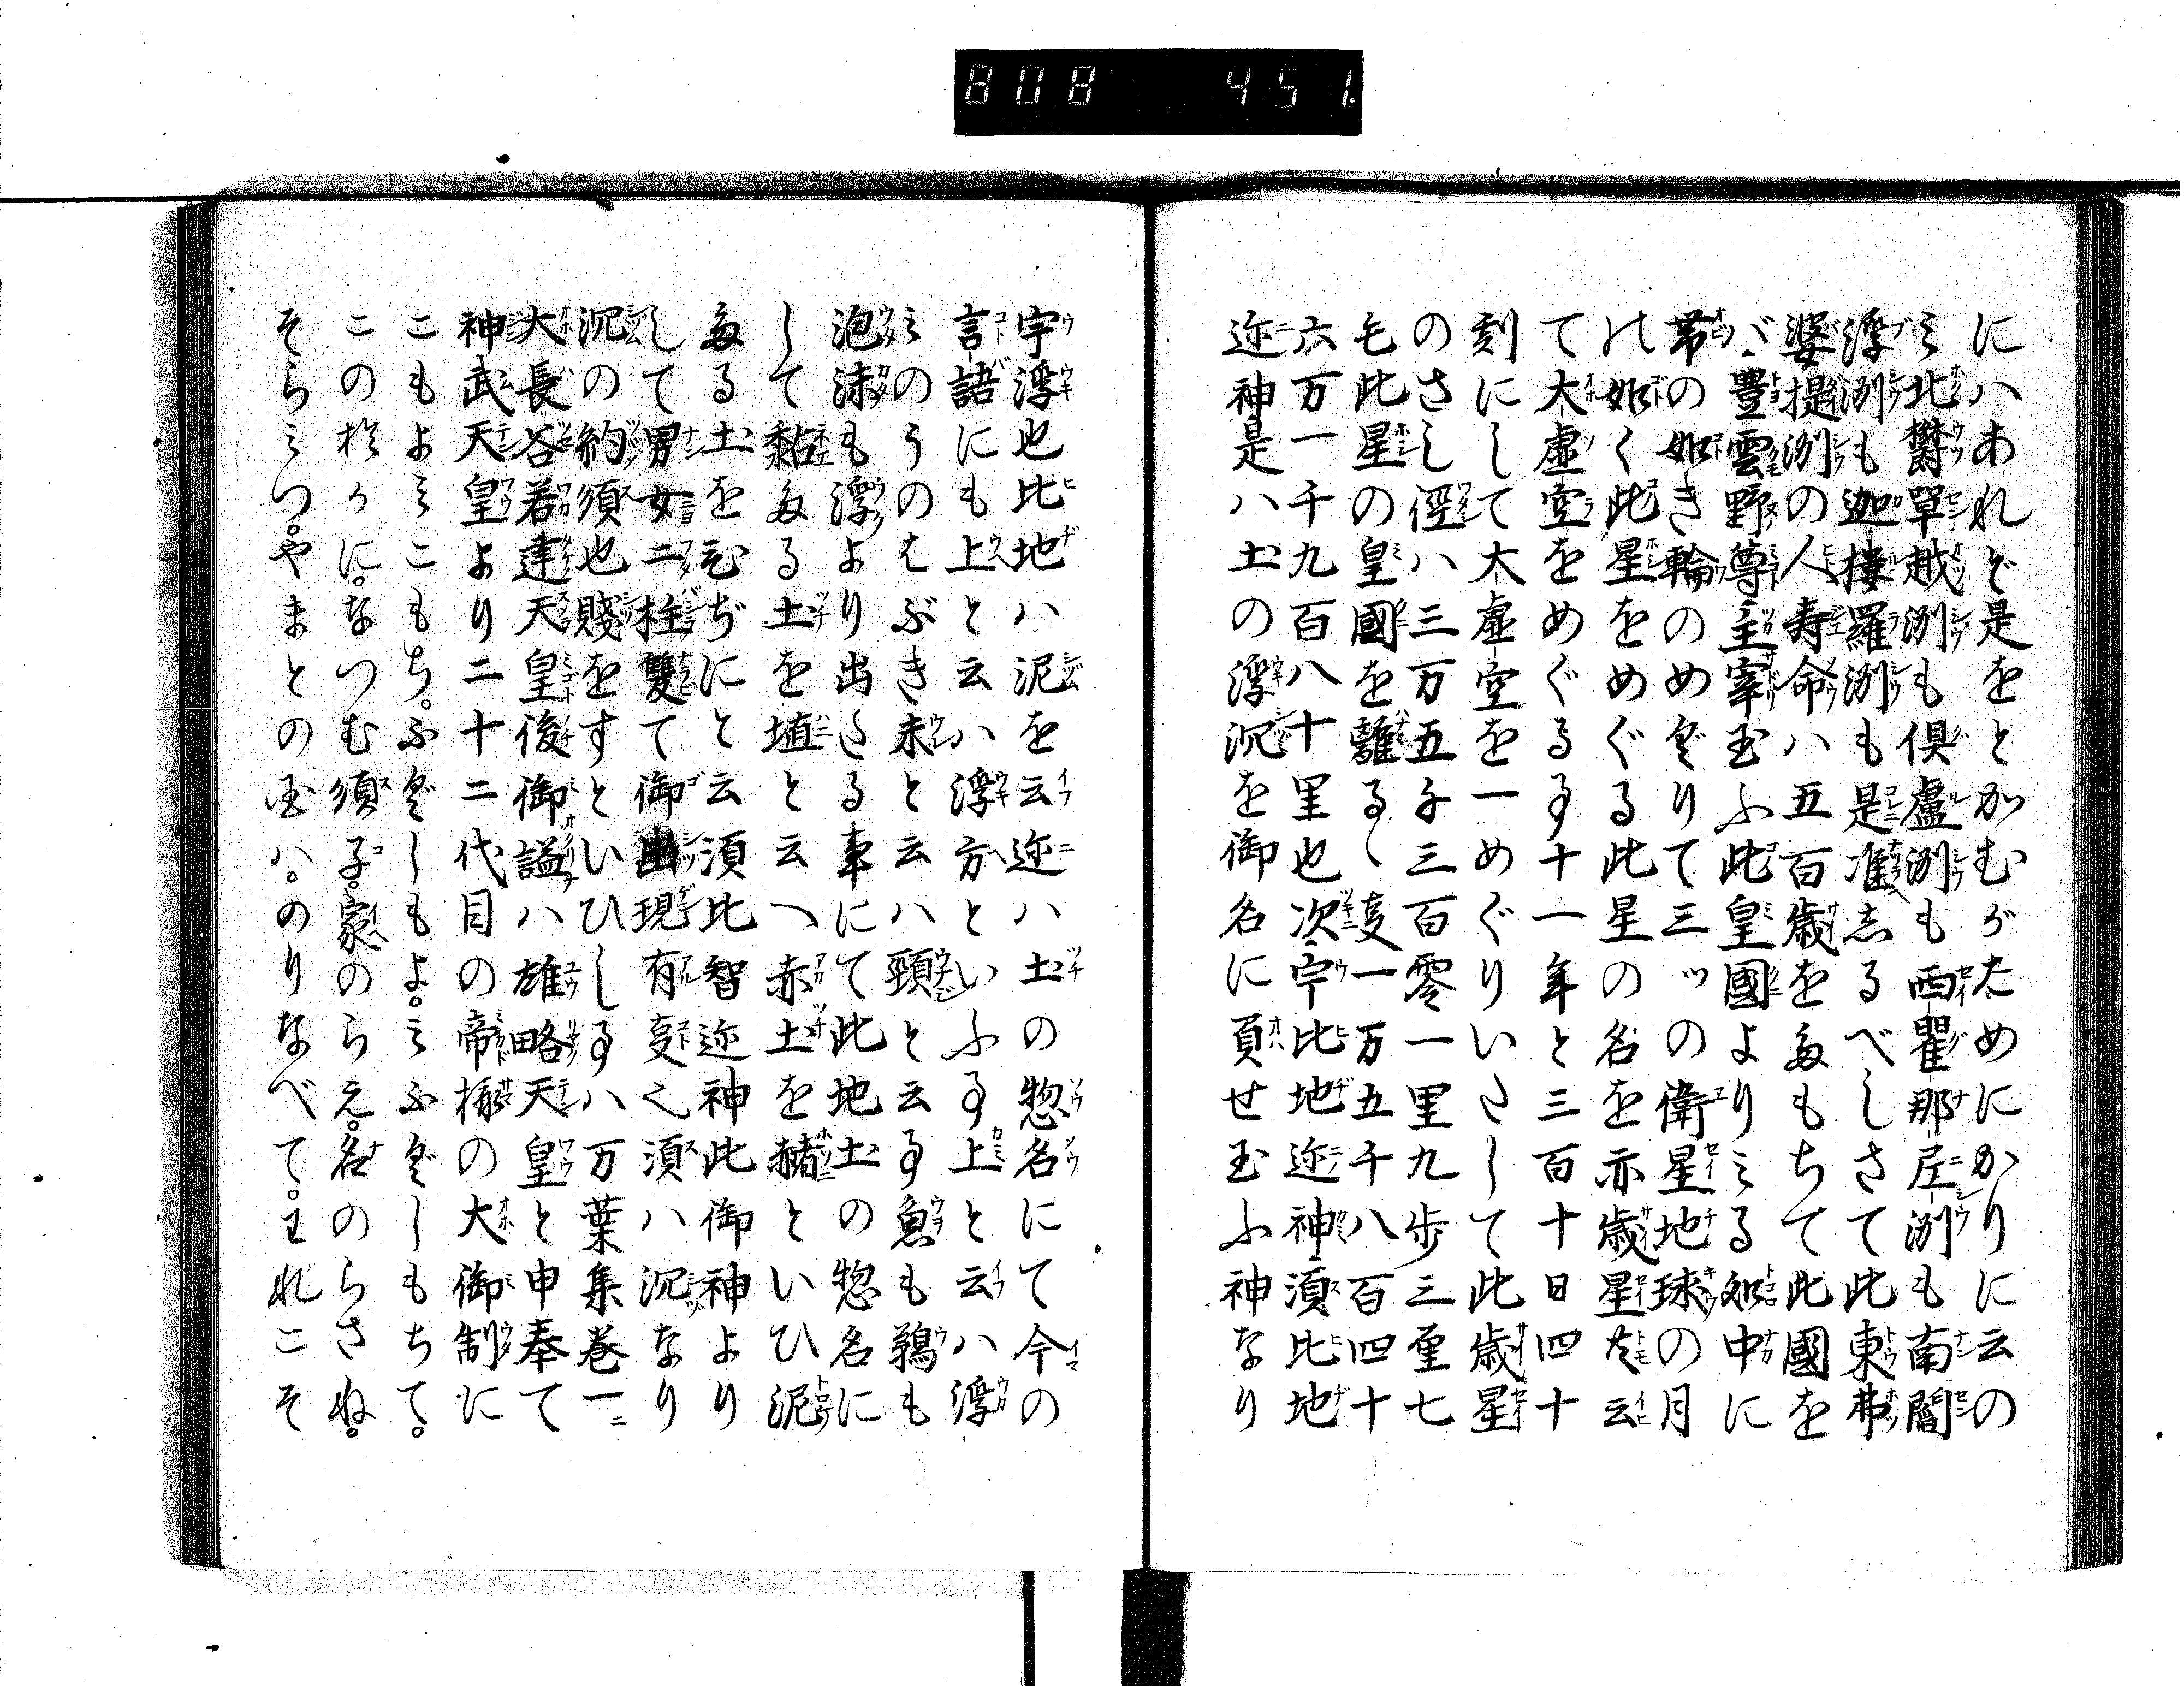 808 451.
にハあれど是をとがむがためにかりに云の
ミ北欝単越洲も倶盧洲も西瞿那尼洲も南閻
浮洲も迦摟羅洲も是に准へしるべしさて此東弗
婆提洲の人寿命ハ五百歳をたもちて此國を
バ豊雲野尊主宰玉ふ此皇國よりミる処中に
帯の如き輪のめぐりて三ッの衛星地球の月
の如く此星をめぐる此星の名を亦歳星共云
て大虚空をめぐる事十一年と三百十日四十
刻にして大虚空を一めぐりいたして此歳星
のさし徑ハ三万五千三百零一里九歩三厘七
毛此星の皇國を離るゝ支一万五千八百四十
六万一千九百八十里也次宇比地迩神須比地
迩神是ハ土の浮沉を御名に負せ玉ふ神なり
宇浮也比地ハ泥を云迩ハ土の惣名にて今の
言語にも上と云ハ浮方といふ事上と云ハ浮
ミのうのはぶき未と云ハ頸と云事魚も鵜も
泡沫も浮より出たる事にて此地土の惣名に
して黏たる土を埴と云へ赤土を赭といひ泥
たる土をひぢにと云須比智迩神此御神より
して男女二柱雙て御出現有支也須ハ沉なり
沉の約須也賤をすといひし事ハ万葉集巻一ニ
大長谷若建天皇後御謚ハ雄略天皇と申奉て
神武天皇より二十二代目の帝様の大御制に
こもよミこもち。ふぐしもよ。ミふぐしもちて。
この村かに。なつむ須子。家のらえ。名のらさね。
そらミつ。やまとの玉ハ。のりなべて。われこそ